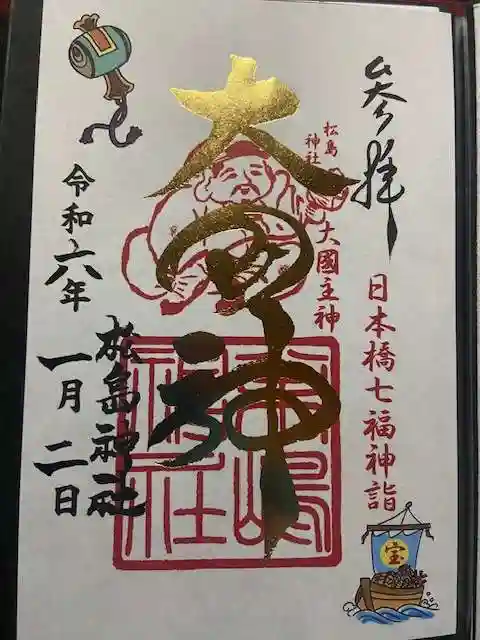 参拝
日本橋七福神詣
宝
松島
神社
大國主神
大黒神
松島神社
松島神社
令和六年
一月二日